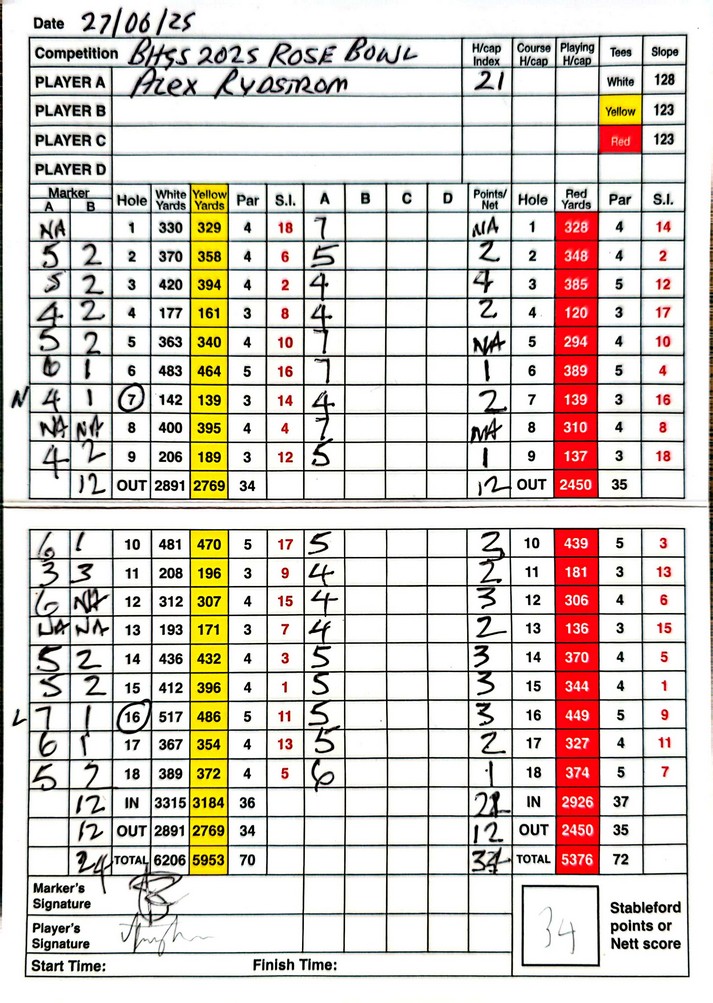 Date 27/06/25
Competition BHGS 2025 ROSE BOWL H/cap Index Course H/cap Playing H/cap Tees Slope
PLAYER A ALEX RYDSTROM 21 White 128
PLAYER B Yellow 123
PLAYER C Red 123
PLAYER D
Marker A B Hole White Yards Yellow Yards Par S.I. A B C D Points/Net Hole Red Yards Par S.I.
NA 1 330 329 4 18 7 NA 1 328 4 14
5 2 2 370 358 4 6 5 2 2 348 4 2
5 2 3 420 394 4 2 4 4 3 385 5 12
4 2 4 177 161 3 8 4 2 4 120 3 17
5 2 5 363 340 4 10 7 NA 5 294 4 10
6 1 6 483 464 5 16 7 1 6 389 5 4
N 4 1 7 142 139 3 14 4 2 7 139 3 16
NA NA 8 400 395 4 4 7 NA 8 310 4 8
4 2 9 206 189 3 12 5 1 9 137 3 18
12 OUT 2891 2769 34 12 OUT 2450 35
6 1 10 481 470 5 17 5 3 10 439 5 3
3 3 11 208 196 3 9 4 2 11 181 3 13
6 NA 12 312 307 4 15 4 3 12 306 4 6
NA NA 13 193 171 3 7 4 2 13 136 3 15
5 2 14 436 432 4 3 5 3 14 370 4 5
5 2 15 412 396 4 1 5 3 15 344 4 1
L 7 1 16 517 486 5 11 5 3 16 449 5 9
6 1 17 367 354 4 13 5 2 17 327 4 11
5 2 18 389 372 4 5 6 1 18 374 5 7
12 IN 3315 3184 36 IN 2926 37
12 OUT 2891 2769 34 12 OUT 2450 35
24 TOTAL 6206 5953 70 34 TOTAL 5376 72
Marker's Signature
Player's Signature
34 Stableford points or Nett score
Start Time: Finish Time: